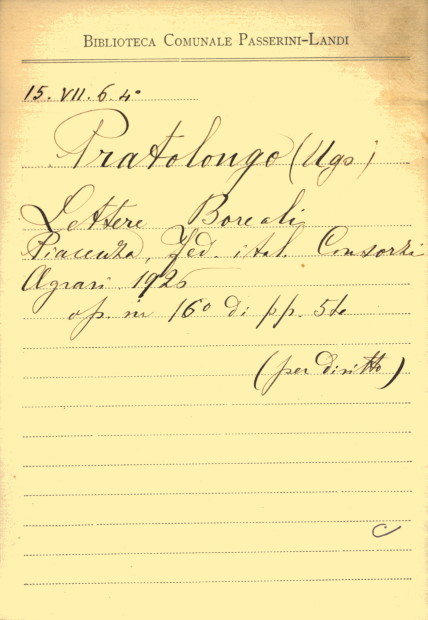 BIBLIOTECA COMUNALE PASSERINI-LANDI
15. VII. 6. 4°
Pratolongo (Ugo)
Lettere Boreali
Piacenza, Fed. ital. Consorzi
Agrari 1926
op. in 16° di pp. 
(per diritto)
C